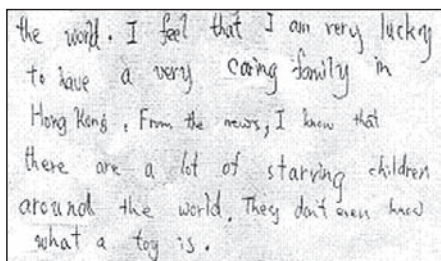 the world. I feel that I am very lucky
to have a very caring family in
Hong Kong. From the news, I know that
there are a lot of starving children
around the world. They don't even know
what a toy is.